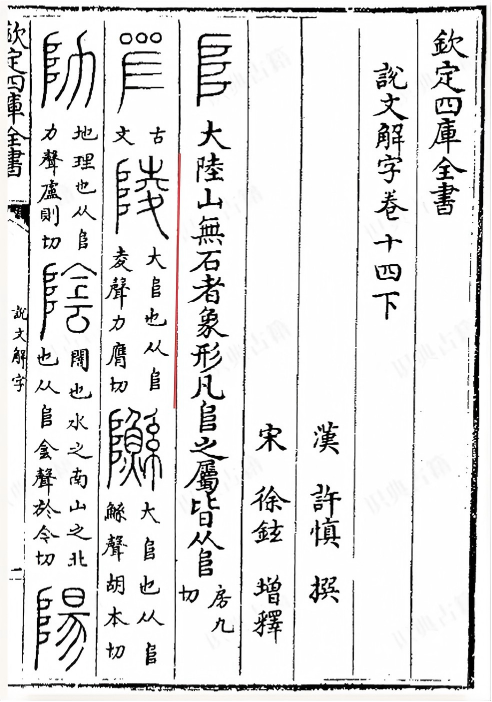 欽定四庫全書
說文解字卷十四下
漢 許慎 撰
宋 徐鉉 增釋
𨸏 大陸山無石者象形凡𨸏之屬皆从𨸏 房九切
古文 陵 大𨸏也从𨸏夌聲力膺切 大𨸏也从𨸏鯀聲胡本切
阞 地理也从𨸏力聲盧則切 陰 闇也水之南山之北也从𨸏侌聲於今切 陽
欽定四庫全書 說文解字 二